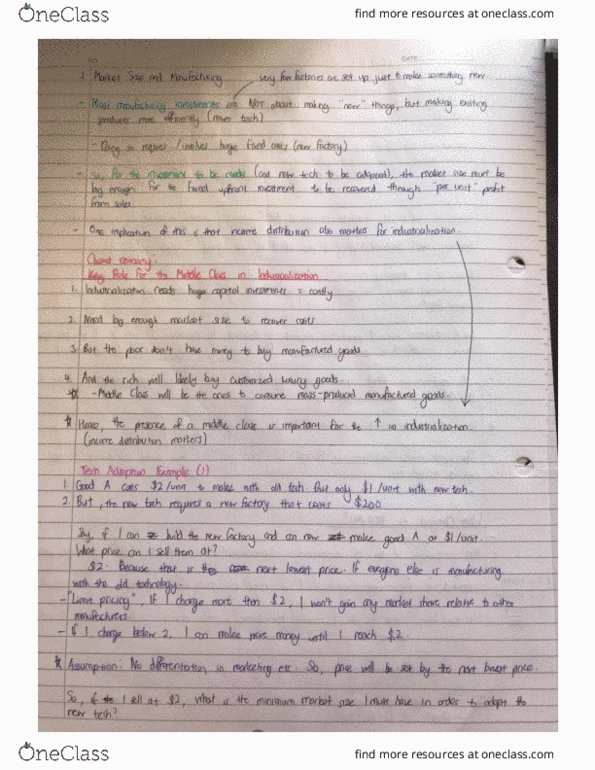 OneClass
find more resources at oneclass.com
NO.
DATE
Market Size and Manufacturing
very few factories are set up just to make something new
- Most manufacturing investments are NOT about making "new" things, but making existing
produces more efficiently (newer tech)
- Doing so requires / involves huge fixed costs (new factory)
- So, for the investment to be made (and new tech to be adopted), the market size must be
big enough for the fixed upfront investment to be recovered through "per unit" profit
from sales
- One implication of this is that income distribution also matters for industrialization.
Key Role for the Middle Class in Industrialization
1. Industrialization needs huge capital investments = costly
2. Need big enough market size to recover costs
3. But the poor don't have money to buy manufactured goods
4. And the rich will likely buy customized luxury goods.
- Middle Class will be the ones to consume mass-produced manufactured goods
Hence, the presence of a middle class is important for the ↑ in industrialization
(income distribution matters)
Tech Adoption Example (1)
1. Good A costs $2/unit to make with old tech. But only $1/unit with new tech.
2. But, the new tech requires a new factory that costs $200
Say, if I can build the new factory and can now make good A at $1/unit.
What price can I sell them at?
$2. Because that is the next lowest price. If everyone else is manufacturing
with the old technology.
- "Limit pricing", If I charge more than $2, I won't gain any market share relative to other
manufacturers.
- If I charge below 2, I can make more money until I reach $2.
Assumption: No differentiation in marketing etc. So, price will be set by the next lowest price.
So, if I sell at $2, what is the minimum market size I must have in order to adopt the
new tech?
OneClass
find more resources at oneclass.com